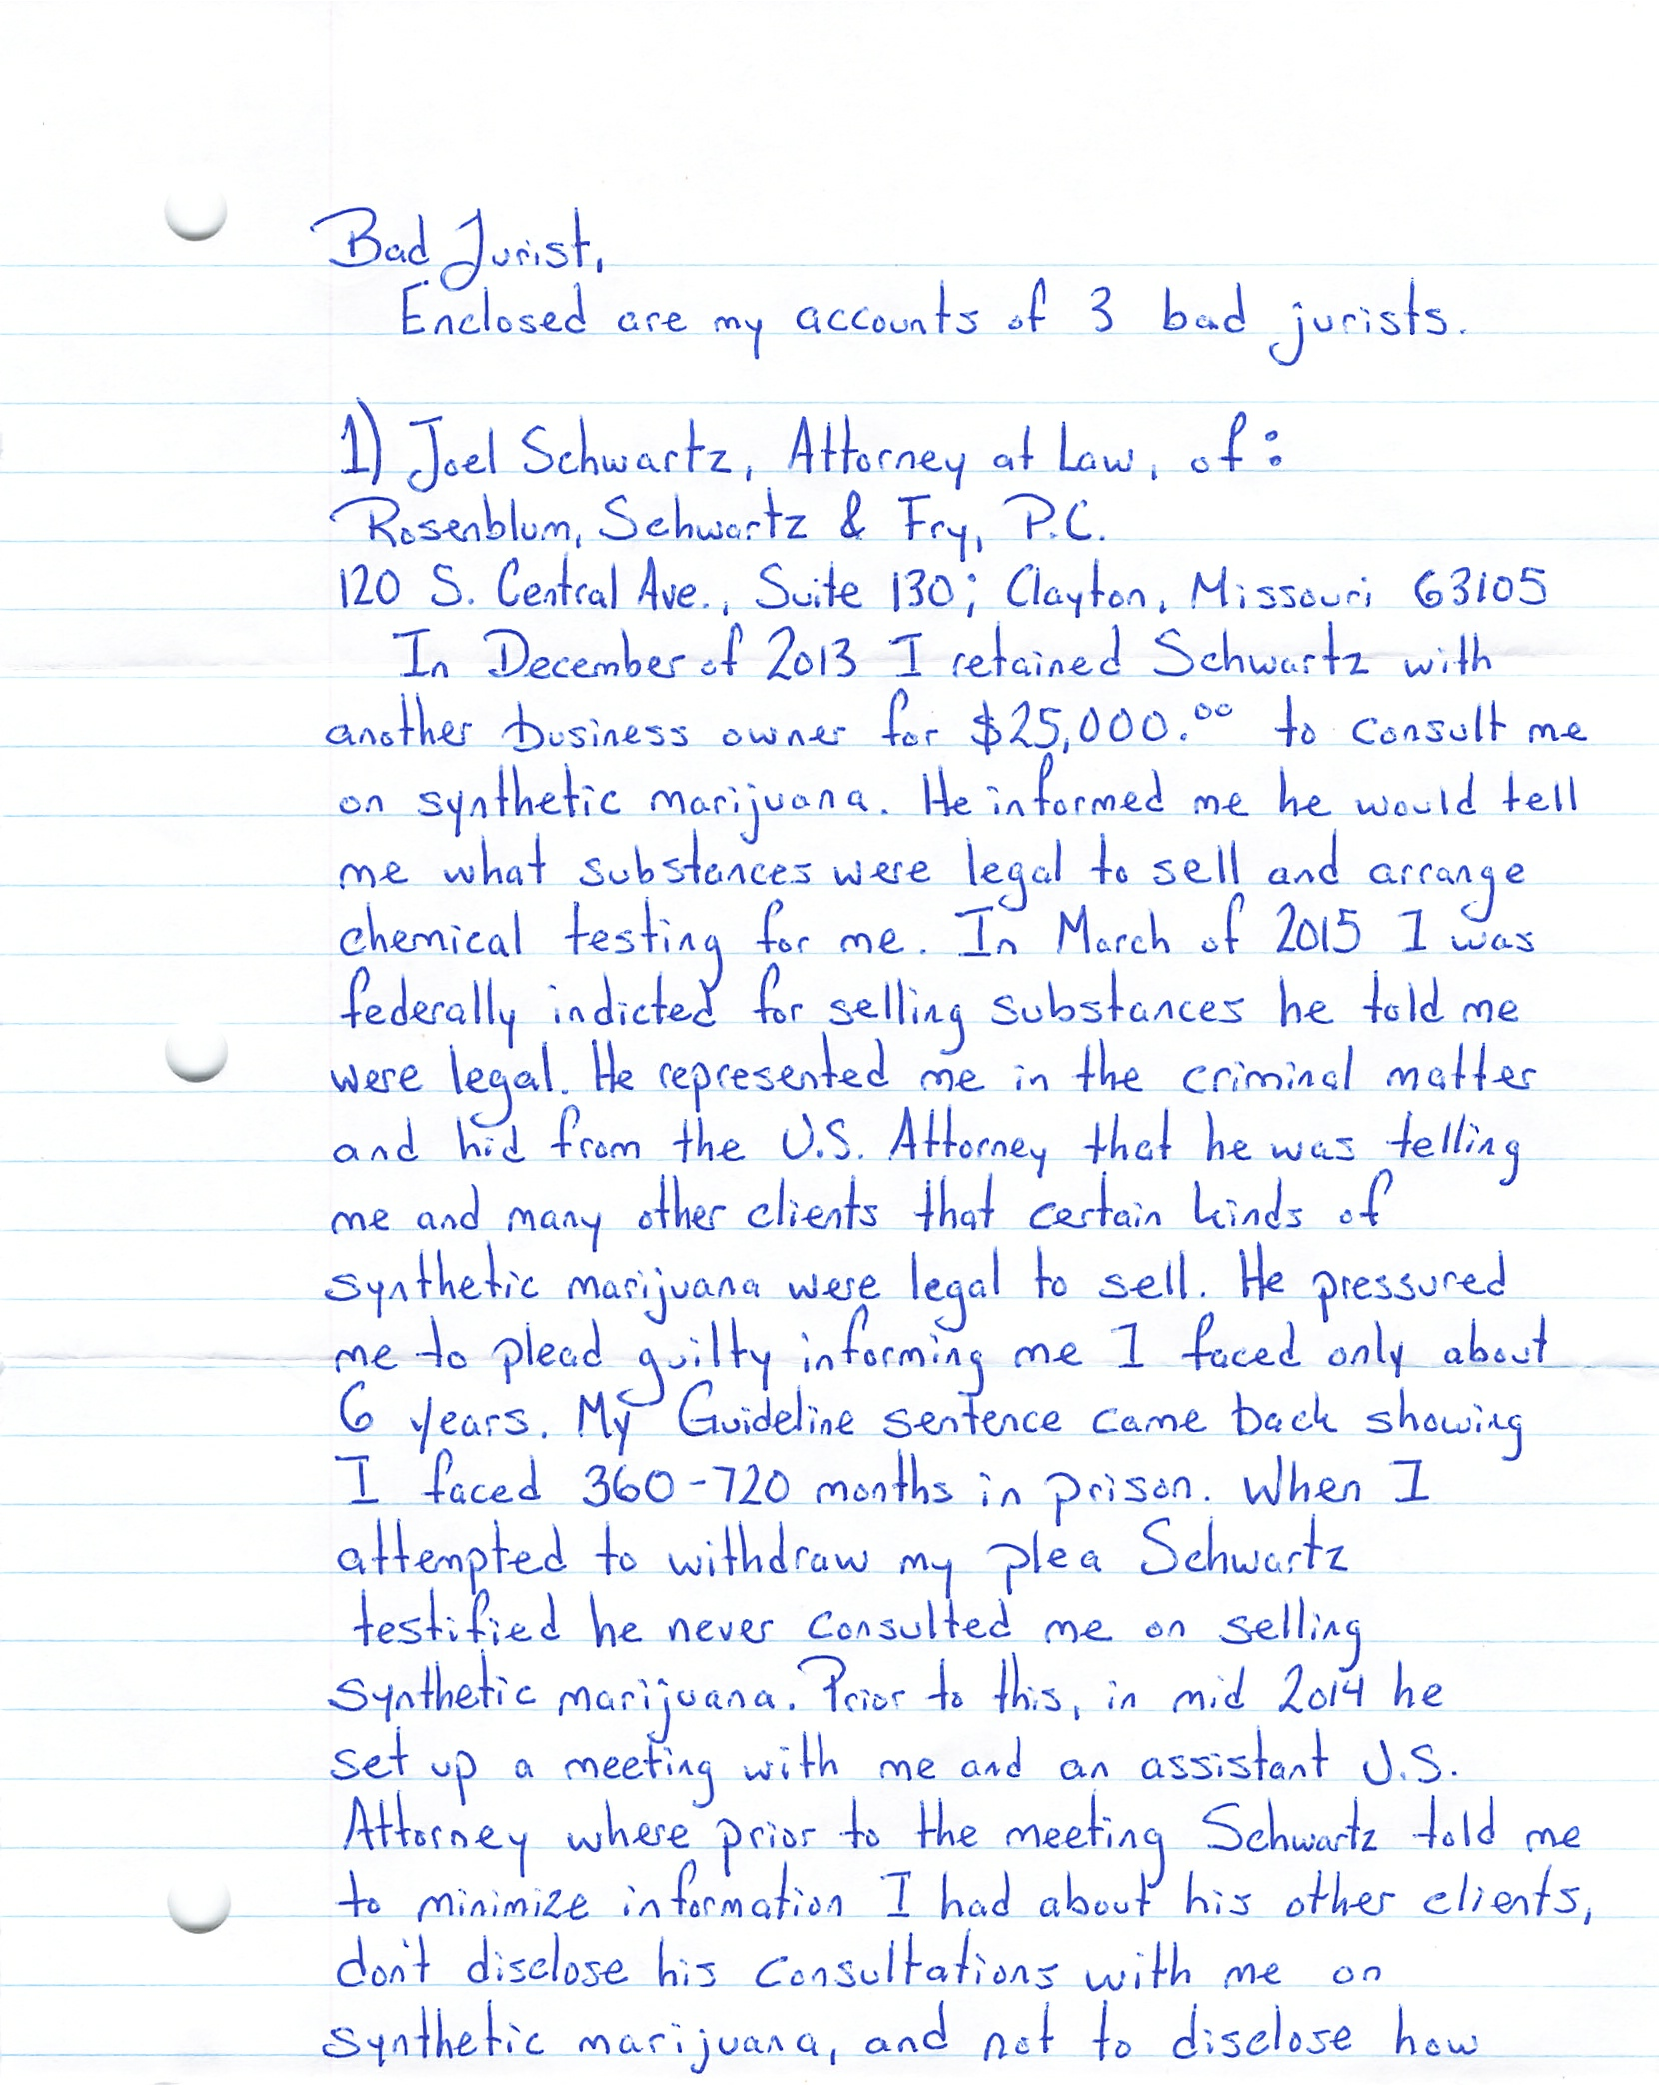 Bad Jurist,
Enclosed are my accounts of 3 bad jurists.
1) Joel Schwartz, Attorney at Law, of:
Rosenblum, Schwartz & Fry, P.C.
120 S. Central Ave., Suite 130; Clayton, Missouri 63105
In December of 2013 I retained Schwartz with
another business owner for $25,000.00 to consult me
on synthetic marijuana. He informed me he would tell
me what substances were legal to sell and arrange
chemical testing for me. In March of 2015 I was
federally indicted for selling substances he told me
were legal. He represented me in the criminal matter
and hid from the U.S. Attorney that he was telling
me and many other clients that certain kinds of
synthetic marijuana were legal to sell. He pressured
me to plead guilty informing me I faced only about
6 years. My Guideline sentence came back showing
I faced 360-720 months in prison. When I
attempted to withdraw my plea Schwartz
testified he never consulted me on selling
synthetic marijuana. Prior to this, in mid 2014 he
set up a meeting with me and an assistant U.S.
Attorney where prior to the meeting Schwartz told me
to minimize information I had about his other clients,
don't disclose his consultations with me on
synthetic marijuana, and not to disclose how